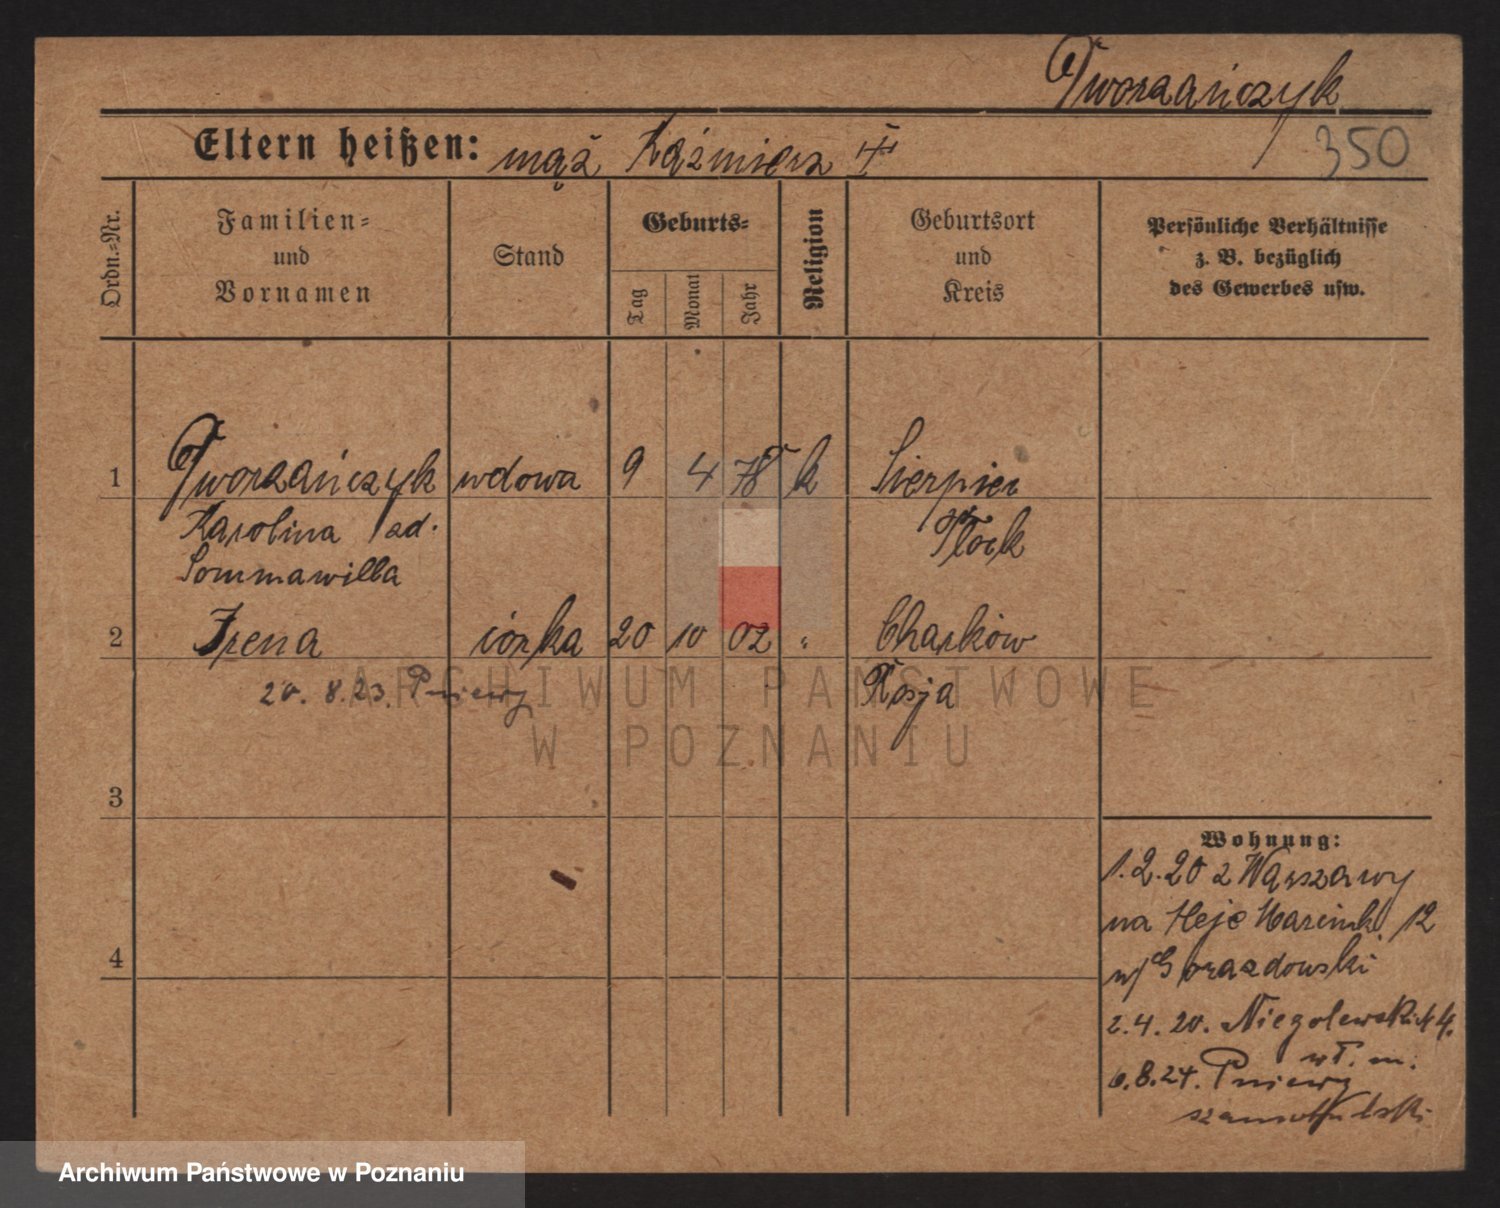 Dworzańczyk
Eltern heißen: mąż Kaźmierz
350
Ordn.-Nr.
Familien-
und
Vornamen
Stand
Geburts-
Tag
Monat
Jahr
Religion
Geburtsort
und
Kreis
Persönliche Verhältnisse
z. B. bezüglich
des Gewerbes usw.
1 Dworzańczyk wdowa 9 4 78 k Sierpiec
Karolina zd. Płock
Sommawilla
2 Irena córka 20 10 02 " Charków
20. 8. 23. Pniewy Rosja
ARCHIWUM PAŃSTWOWE
W POZNANIU
3
4
Wohnung:
1.2.20 z Warszawy
na Aleje Marcink. 12
w/ Gorazdowski
2.4.20. Niegolewskich 4.
wł. m.
6.8.24. Pniewy
szamotulski
Archiwum Państwowe w Poznaniu